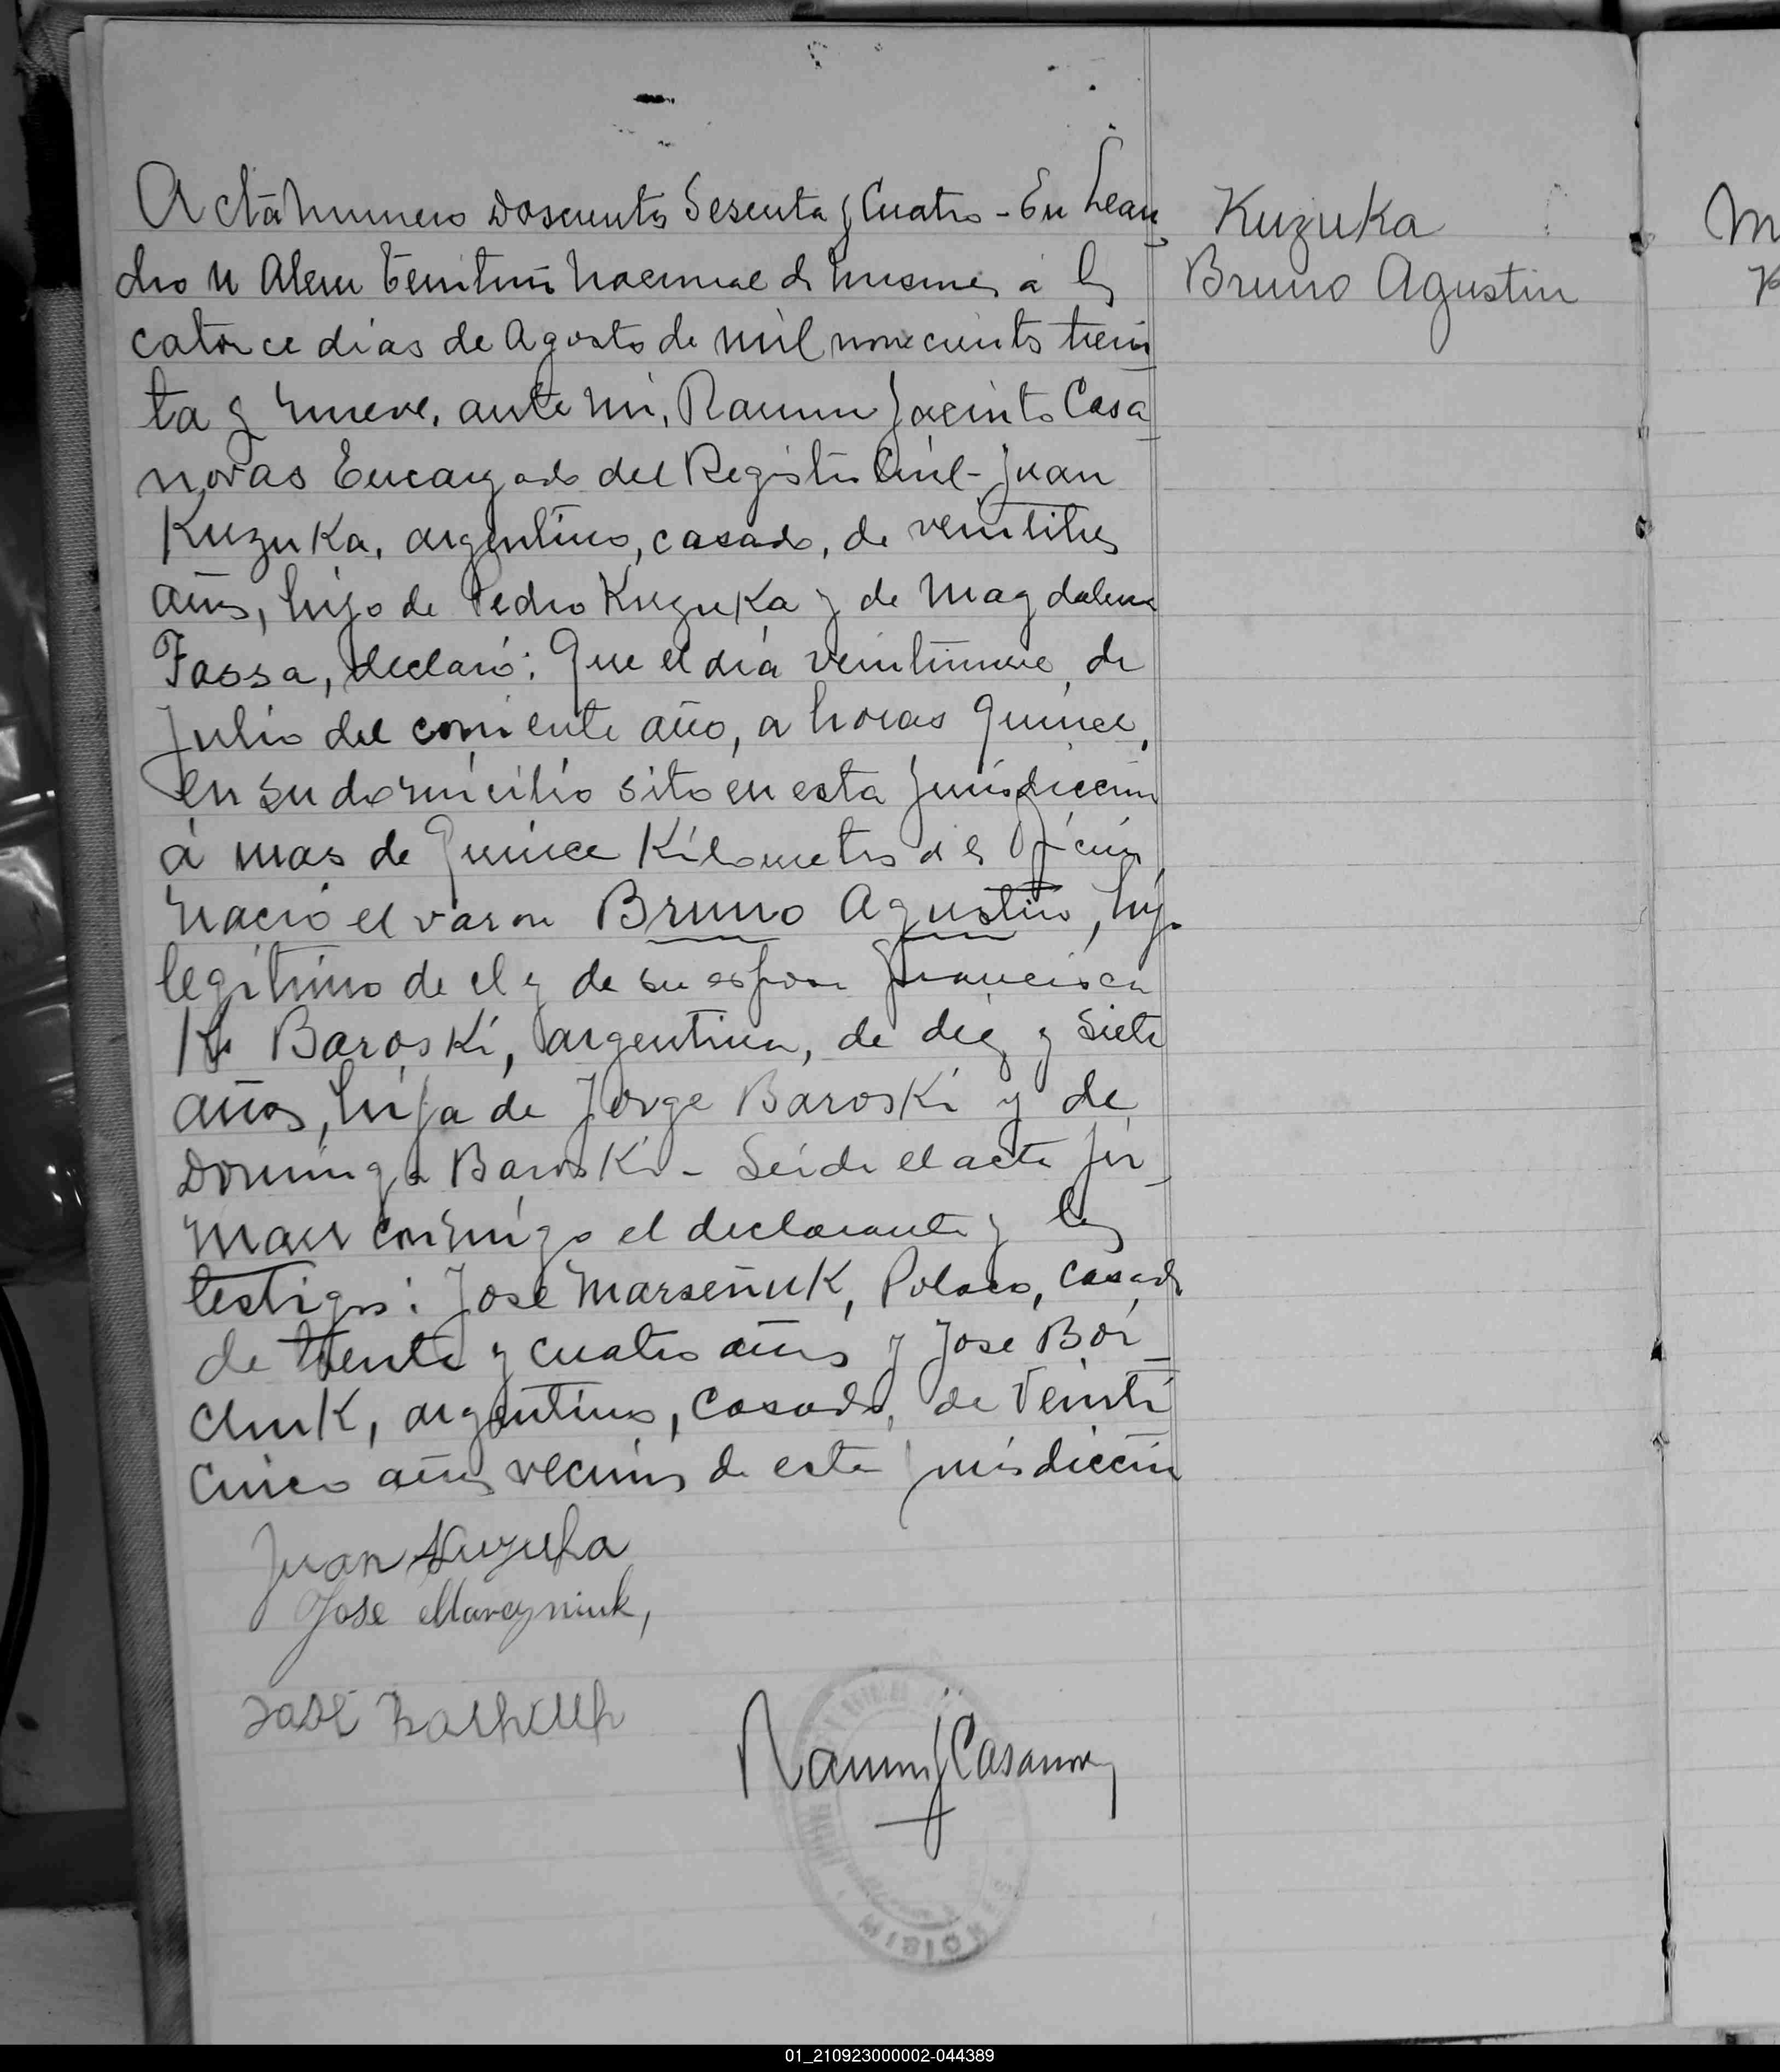 Acta número Doscientos Sesenta y Cuatro - En Lean
dro N Alem Territorio Nacional de Misiones a los
catorce días de Agosto de mil novecientos trein
ta y nueve, ante mí, Ramon Jacinto Casa
novas Encargado del Registro Civil - Juan
Kuzuka, argentino, casado, de veintitres
años, hijo de Pedro Kuzuka y de Magdalena
Fassa, declaró: Que el día veintinueve de
Julio del corriente año, a horas quince,
en su domicilio sito en esta jurisdicción
á mas de quince Kilometros de la Oficina
nació el varon Bruno Agustin, hijo
legítimo de el y de su esposa Francisca
Baroski, argentina, de diez y siete
años, hija de Jorge Baroski y de
Dominga Baroski - Leida el acta fir
man conmigo el declarante y los
testigos: José Marseñuk, Polaco, casado
de treinta y cuatro años y José Boi
chuk, argentino, casado, de Veinti
cinco años vecinos de esta jurisdicción
Juan Kuzuka
Jose Marczniuk,
José
Ramon J Casanovas
MISIONES
Kuzuka
Bruno Agustin
01_210923000002-044389